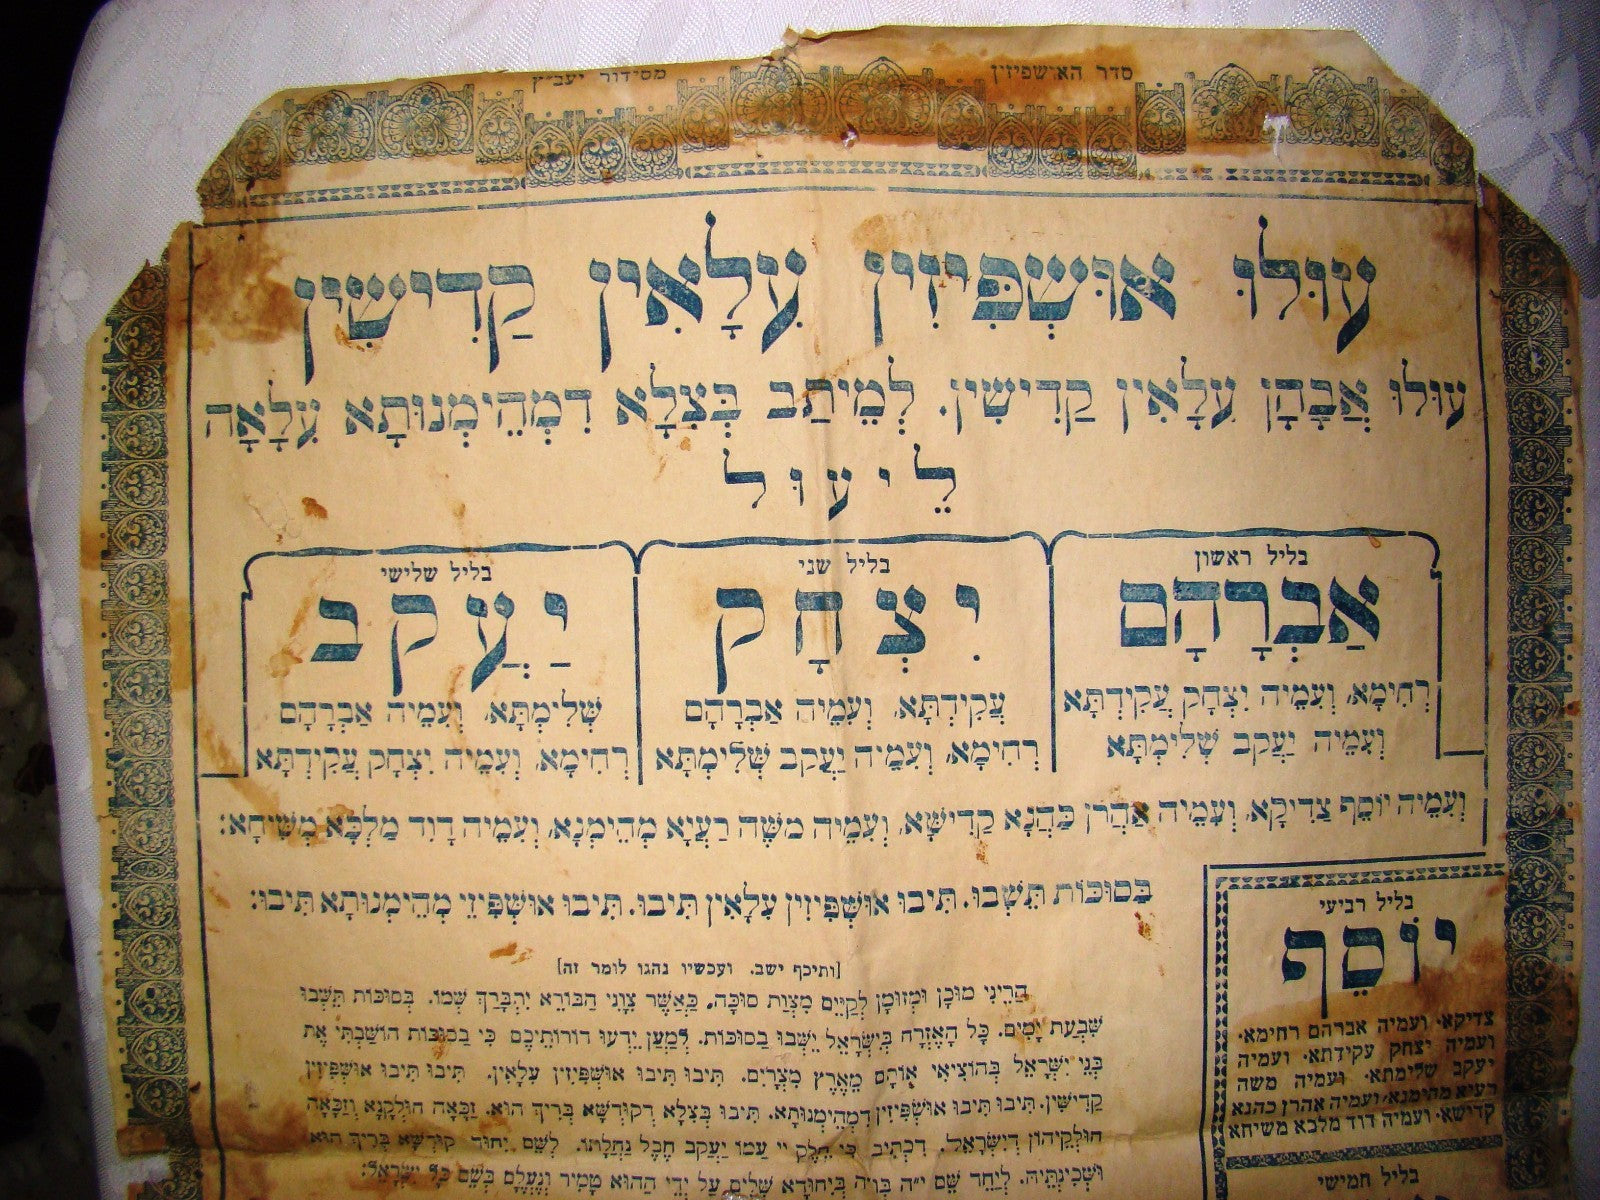 סדר האושפיזין
מסידור יעב״ץ
עוּלוּ אוּשְׁפִּיזִין עִלָּאִין קַדִּישִׁין
עוּלוּ אֲבָהָן עִלָּאִין קַדִּישִׁין. לְמֵיתַב בְּצִלָּא דִמְהֵימְנוּתָא עִלָּאָה
לֵיעוּל
בליל ראשון
אַבְרָהָם
רְחִימָא, וְעִמֵּיהּ יִצְחָק עֲקִידְתָּא
וְעִמֵּיהּ יַעֲקֹב שְׁלֵימְתָּא
בליל שני
יִצְחָק
עֲקִידְתָּא, וְעִמֵּיהּ אַבְרָהָם
רְחִימָא, וְעִמֵּיהּ יַעֲקֹב שְׁלֵימְתָּא
בליל שלישי
יַעֲקֹב
שְׁלֵימְתָּא, וְעִמֵּיהּ אַבְרָהָם
רְחִימָא, וְעִמֵּיהּ יִצְחָק עֲקִידְתָּא
וְעִמֵּיהּ יוֹסֵף צַדִּיקָא, וְעִמֵּיהּ אַהֲרֹן כַּהֲנָא קַדִּישָׁא, וְעִמֵּיהּ מֹשֶׁה רַעְיָא מְהֵימְנָא, וְעִמֵּיהּ דָוִד מַלְכָּא מְשִׁיחָא:
בַּסוּכּוֹת תֵּשְׁבוּ. תִּיבוּ אוּשְׁפִּיזִין עִלָּאִין תִּיבוּ. תִּיבוּ אוּשְׁפִּיזֵי מְהֵימְנוּתָא תִּיבוּ:
[ותיכף ישב. ועכשיו נהגו לומר זה]
הֲרֵינִי מוּכָן וּמְזוּמָן לְקַיֵּים מִצְוַת סוּכָּה, כַּאֲשֶׁר צִוַּנִי הַבּוֹרֵא יִתְבָּרַךְ שְׁמוֹ. בַּסוּכּוֹת תֵּשְׁבוּ
שִׁבְעַת יָמִים. כָּל הָאֶזְרָח בְּיִשְׂרָאֵל יֵשְׁבוּ בַסוּכּוֹת. לְמַעַן יֵדְעוּ דוֹרוֹתֵיכֶם כִּי בַסוּכּוֹת הוֹשַׁבְתִּי אֶת
בְּנֵי יִשְׂרָאֵל בְּהוֹצִיאִי אוֹתָם מֵאֶרֶץ מִצְרָיִם. תִּיבוּ תִּיבוּ אוּשְׁפִּיזִין עִלָּאִין. תִּיבוּ תִּיבוּ אוּשְׁפִּיזִין
קַדִּישִׁין. תִּיבוּ תִּיבוּ אוּשְׁפִּיזִין דִמְהֵימְנוּתָא. תִּיבוּ בְּצִלָּא דְקוּדְשָׁא בְּרִיךְ הוּא. זַכָּאָה חוּלָקָנָא וְזַכָּאָה
חוּלָקֵיהוֹן דְיִשְׂרָאֵל. דִכְתִיב כִּי חֵלֶק יְיָ עַמּוֹ יַעֲקֹב חֶבֶל נַחֲלָתוֹ. לְשֵׁם יִחוּד קוּדְשָׁא בְּרִיךְ הוּא
וּשְׁכִינְתֵּיהּ. לְיַחֵד שֵׁם י״ה בו״ה בְּיִחוּדָא שְׁלִים עַל יְדֵי הַהוּא טָמִיר וְנֶעְלָם בְּשֵׁם כָּל יִשְׂרָאֵל:
בליל רביעי
יוֹסֵף
צדיקא, ועמיה אברהם רחימא,
ועמיה יצחק עקידתא, ועמיה
יעקב שלימתא, ועמיה משה
רעיא מהימנא, ועמיה אהרן כהנא
קדישא, ועמיה דוד מלכא משיחא
בליל חמישי